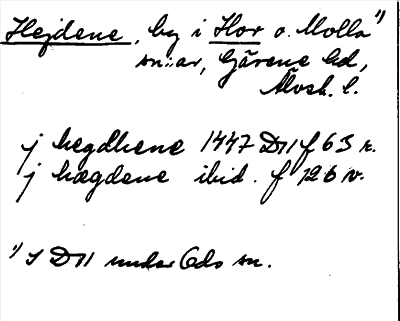 Hejdene, by i Hor o. Molla 1)
sn:ar, Gärene hd,
Älvsb. l.
j hegdhene 1447 D11 f 63 r.
j hægdene ibid. f 126 v.
1) I D11 under Ods sn.